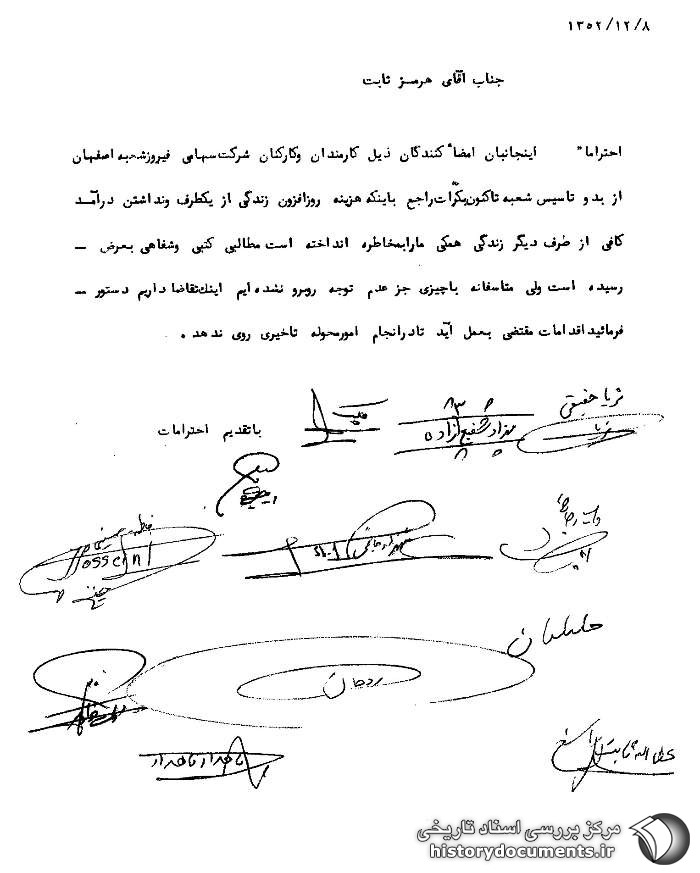 ۱۳۵۲/۱۲/۸
جناب آقای هرمز ثابت
احتراما" اینجانبان امضاء کنندگان ذیل کارمندان وکارکنان شرکت سهامی فیروز شعبه اصفهان
از بدو تاسیس شعبه تاکنون بکرّات راجع باینکه هزینه روزافزون زندگی از یکطرف ونداشتن درآمد
کافی از طرف دیگر زندگی همگی مارابمخاطره انداخته است مطالبی کتبی وشفاهی بعرض –
رسیده است ولی متاسفانه باچیزی جز عدم توجه روبرو نشده ایم اینك تقاضا داریم دستور –
فرمائید اقدامات مقتضی بعمل آید تا در انجام امور محوله تاخیری روی ندهد .
ثریا حقیقی
بهزاد شفیع زاده
باتقدیم احترامات
Hosseini
ناهدار ناهدار
مرکز بررسی اسناد تاریخی
historydocuments.ir